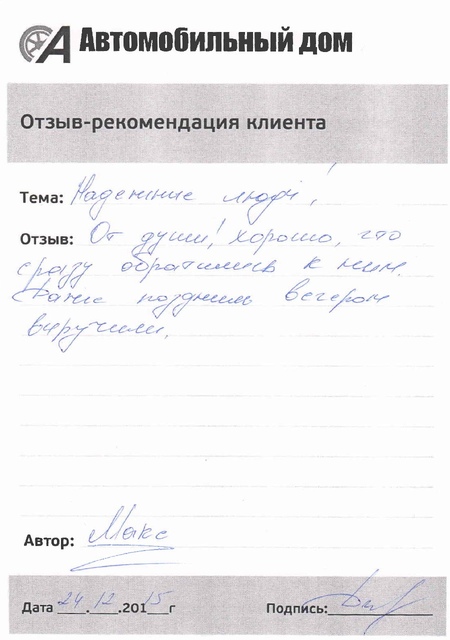 Автомобильный дом
Отзыв-рекомендация клиента
Тема: Надежные люди!
Отзыв: От души! хорошо, что
сразу обратились к ним.
Даже поздним вечером
выручили.
Автор: Макс
Дата 24.12.2015г Подпись: